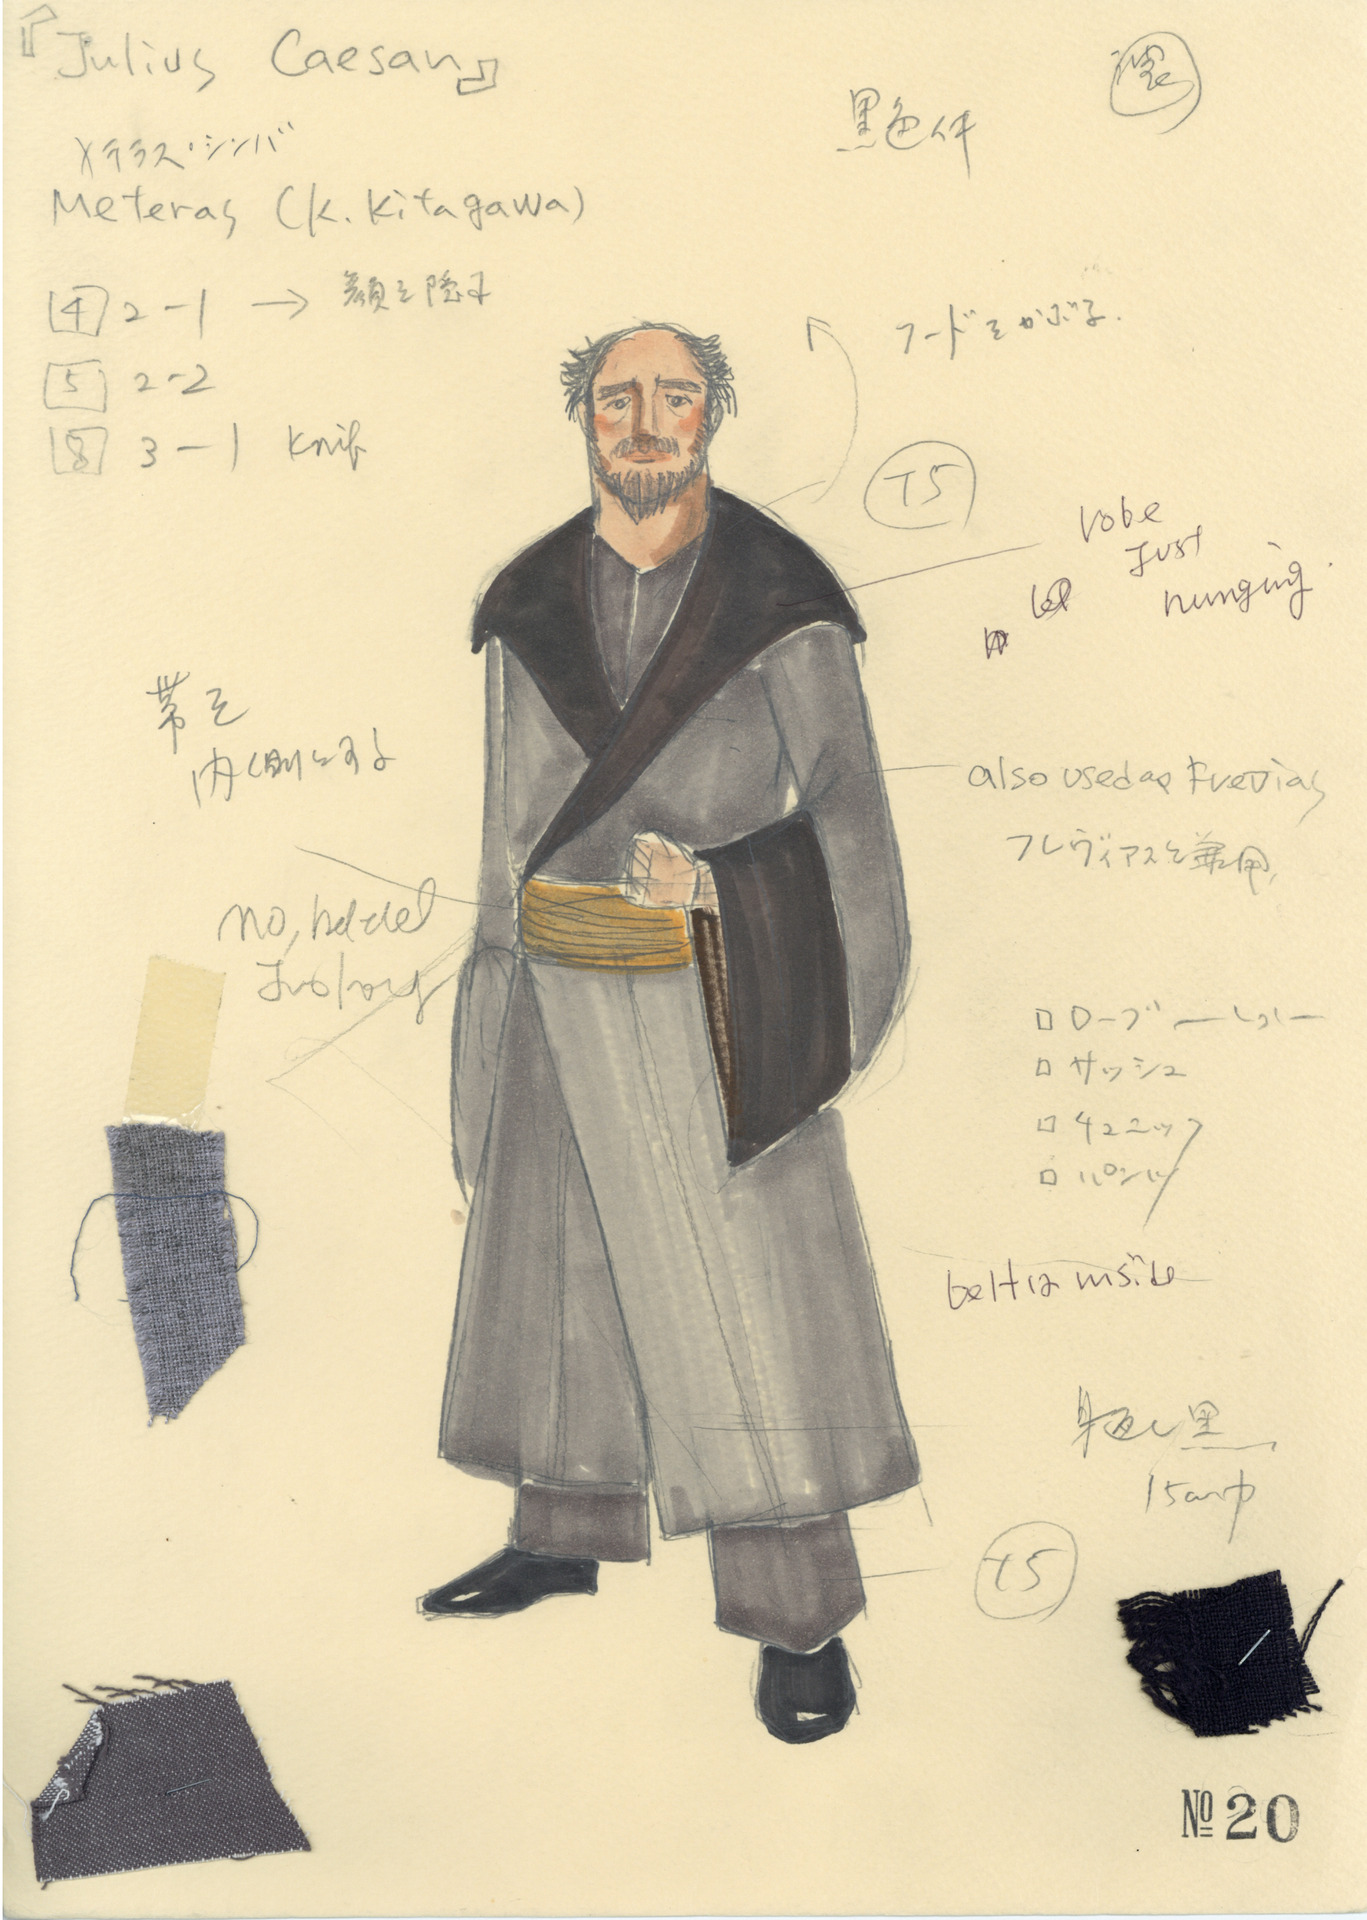 『Julius Caesar』
メテラス・シンバ
Meteras (K. Kitagawa)
4 2-1 → 顔を隠す
5 2-2
8 3-1 Knif
黒
フードをかぶる.
T5
robe
Just
hunging.
帯を
内側にする
also used as Frevias
フレヴィアスと兼用
no,
□ ローブ
□ サッシュ
□ チュニック
□ パンツ
belt is inside
見返し黒
15cm巾
T5
No 20